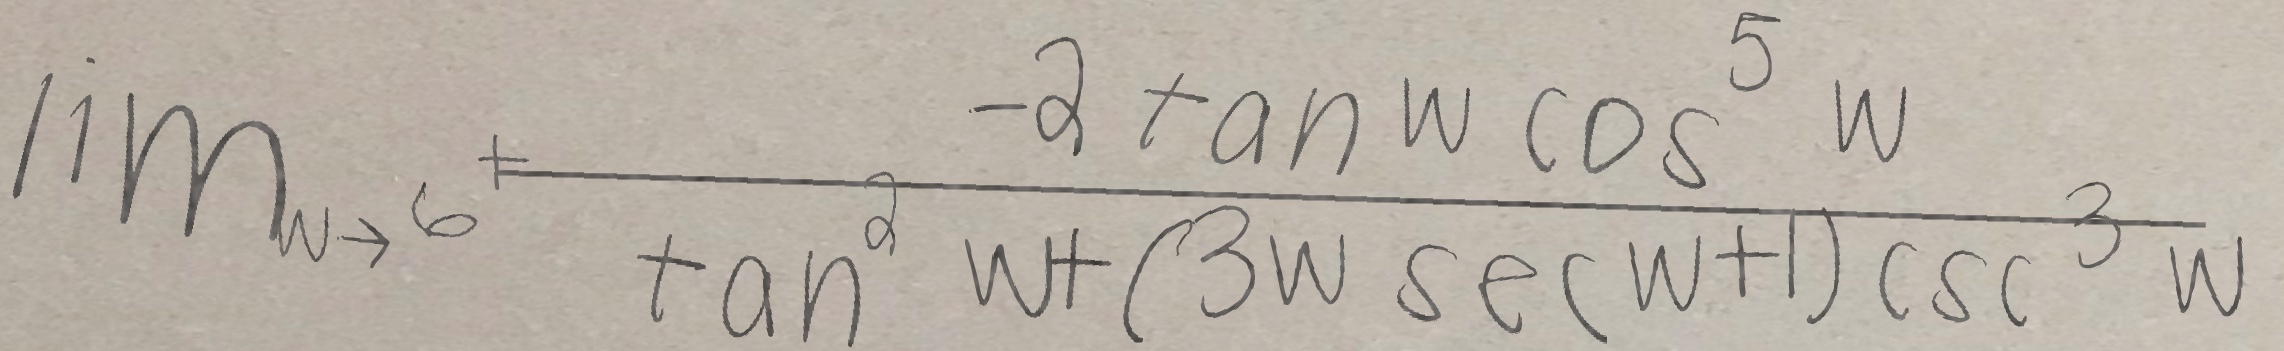 lim_{w→6^+} \frac{-2 tan w cos^5 w}{tan^2 w+(3w sec w+1) csc^3 w}